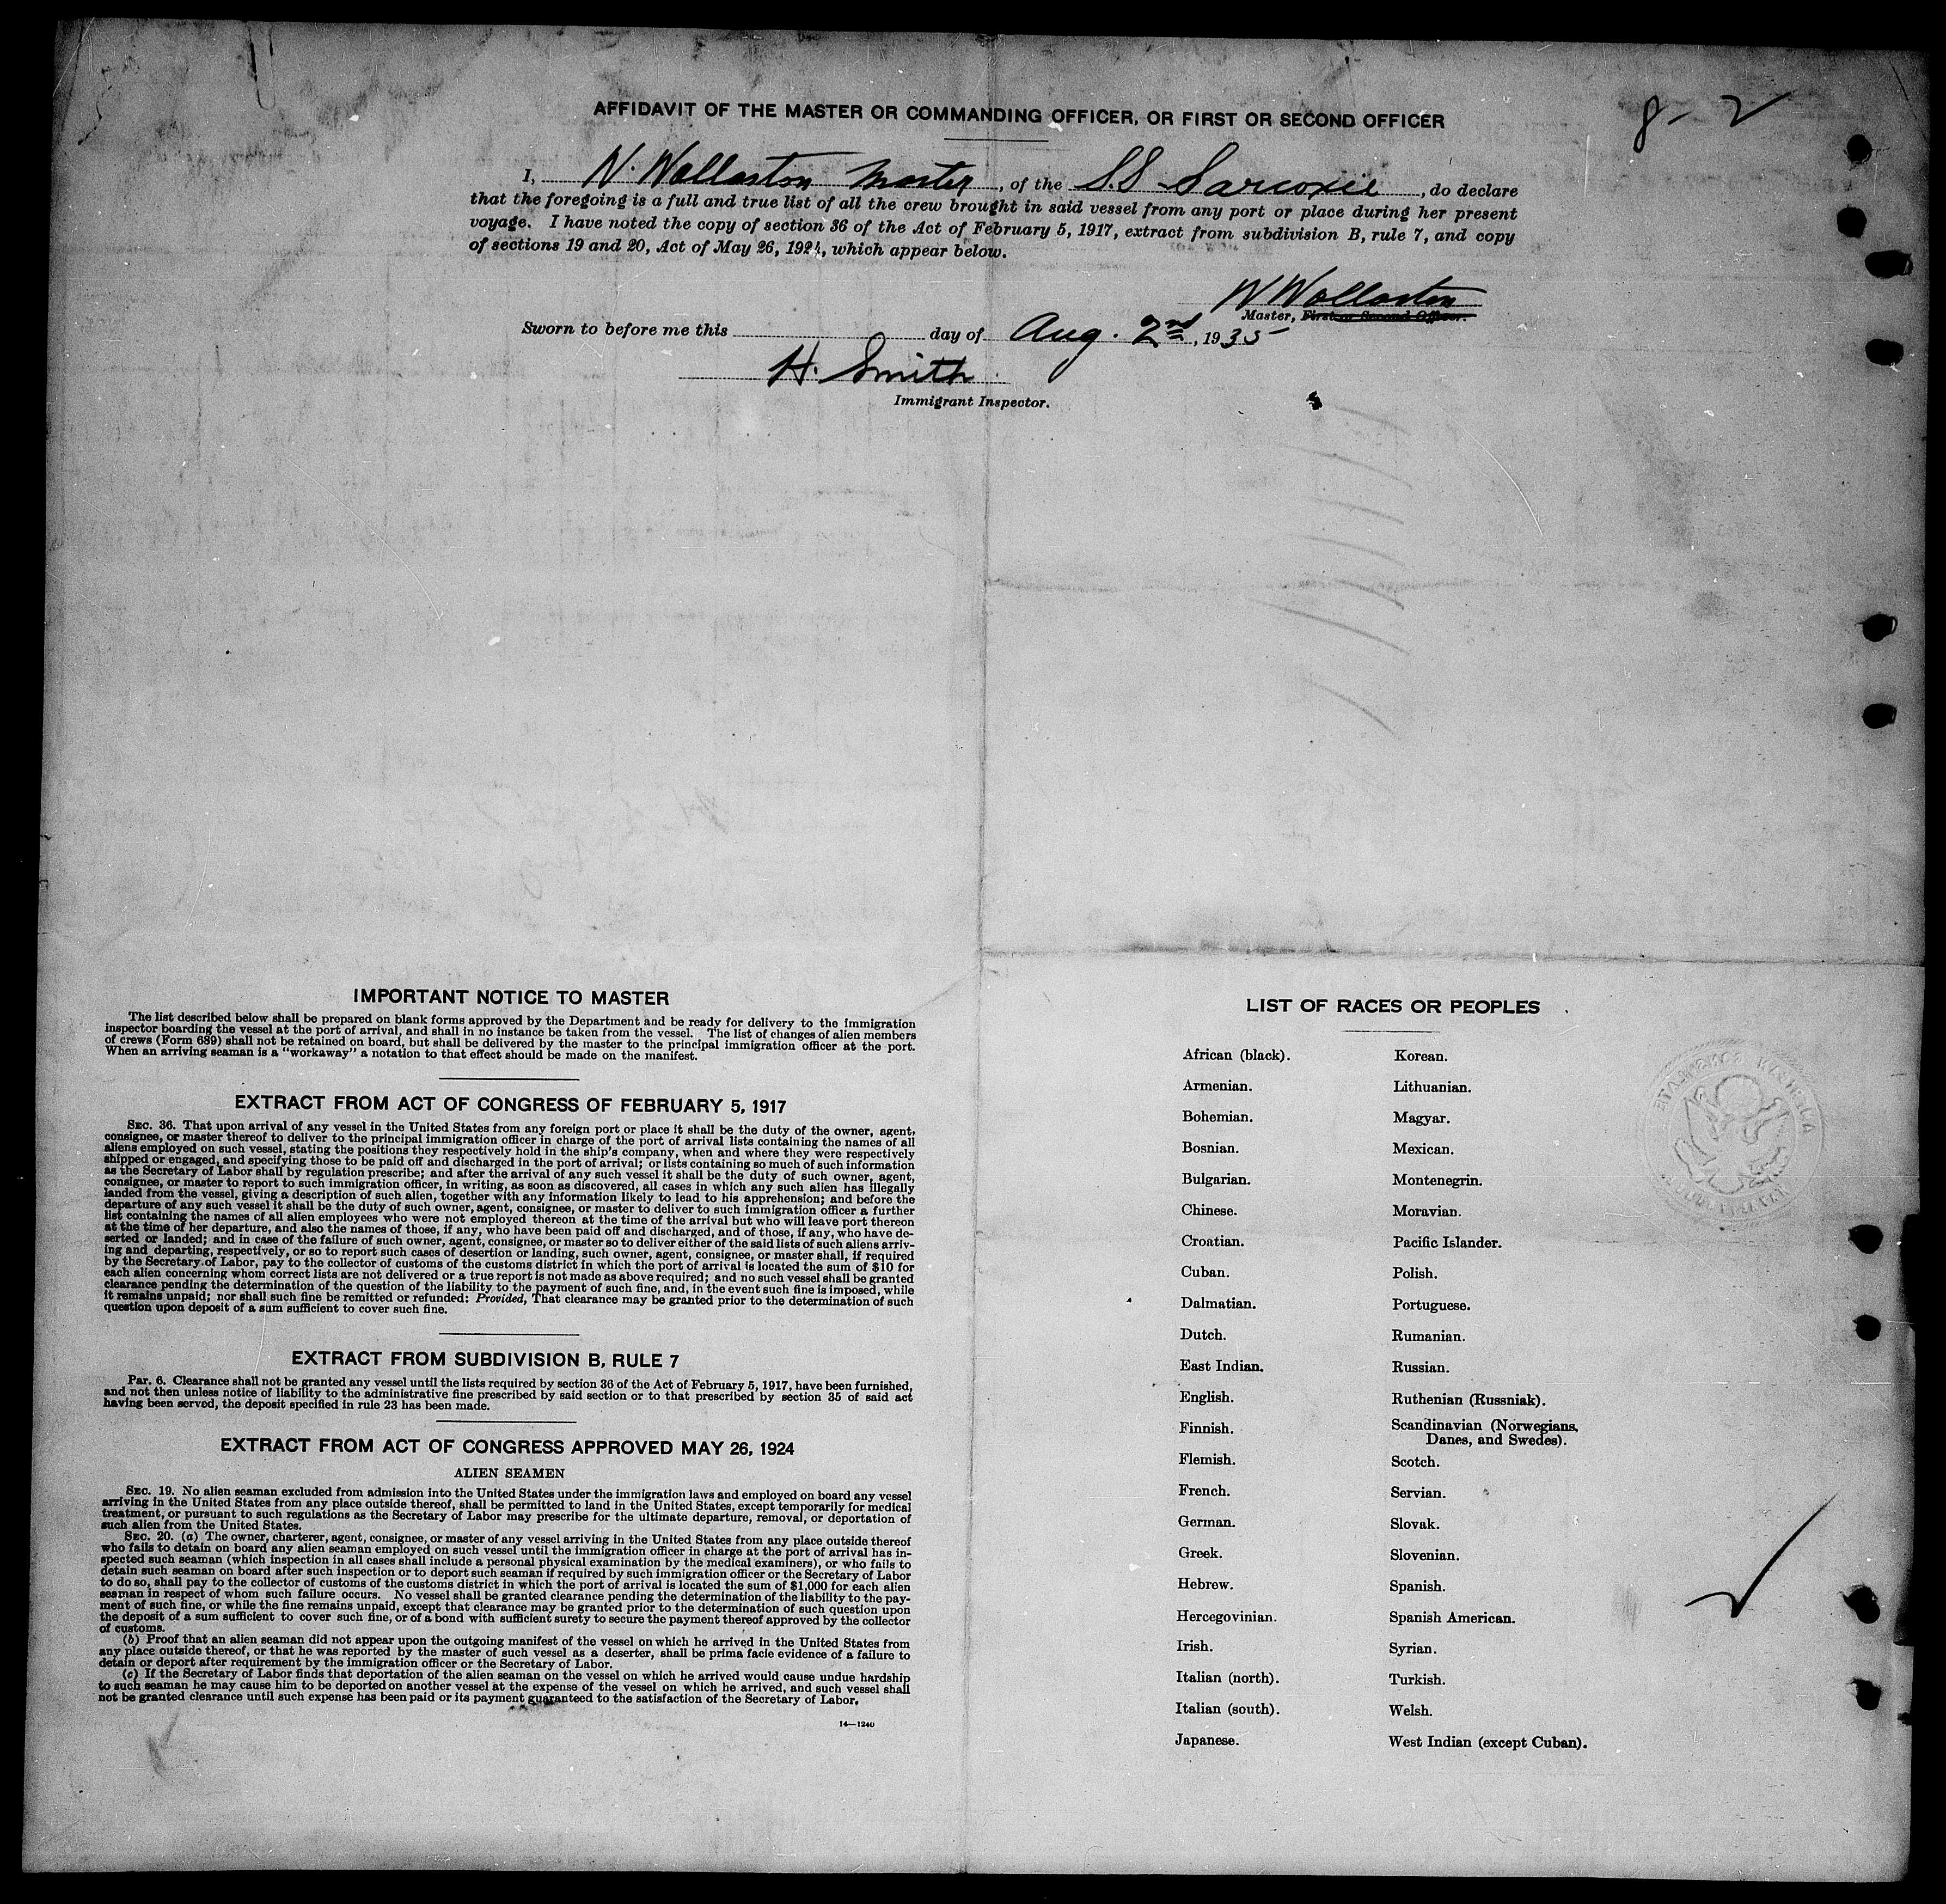 AFFIDAVIT OF THE MASTER OR COMMANDING OFFICER, OR FIRST OR SECOND OFFICER
8-2
I, N. Wollaston Master, of the S.S Sarcoxie, do declare
that the foregoing is a full and true list of all the crew brought in said vessel from any port or place during her present
voyage. I have noted the copy of section 36 of the Act of February 5, 1917, extract from subdivision B, rule 7, and copy
of sections 19 and 20, Act of May 26, 1924, which appear below.
N Wollaston
Master, First or Second Officer.
Sworn to before me this day of Aug. 2nd, 1935
H. Smith
Immigrant Inspector.
IMPORTANT NOTICE TO MASTER
The list described below shall be prepared on blank forms approved by the Department and be ready for delivery to the immigration
inspector boarding the vessel at the port of arrival, and shall in no instance be taken from the vessel. The list of changes of alien members
of crews (Form 689) shall not be retained on board, but shall be delivered by the master to the principal immigration officer at the port.
When an arriving seaman is a "workaway" a notation to that effect should be made on the manifest.
EXTRACT FROM ACT OF CONGRESS OF FEBRUARY 5, 1917
SEC. 36. That upon arrival of any vessel in the United States from any foreign port or place it shall be the duty of the owner, agent,
consignee, or master thereof to deliver to the principal immigration officer in charge of the port of arrival lists containing the names of all
aliens employed on such vessel, stating the positions they respectively hold in the ship's company, when and where they were respectively
shipped or engaged, and specifying those to be paid off and discharged in the port of arrival; or lists containing so much of such information
as the Secretary of Labor shall by regulation prescribe; and after the arrival of any such vessel it shall be the duty of such owner, agent,
consignee, or master to report to such immigration officer, in writing, as soon as discovered, all cases in which any such alien has illegally
landed from the vessel, giving a description of such alien, together with any information likely to lead to his apprehension; and before the
departure of any such vessel it shall be the duty of such owner, agent, consignee, or master to deliver to such immigration officer a further
list containing the names of all alien employees who were not employed thereon at the time of the arrival but who will leave port thereon
at the time of her departure, and also the names of those, if any, who have been paid off and discharged, and of those, if any, who have de-
serted or landed; and in case of the failure of such owner, agent, consignee, or master so to deliver either of the said lists of such aliens arriv-
ing and departing, respectively, or so to report such cases of desertion or landing, such owner, agent, consignee, or master shall, if required
by the Secretary of Labor, pay to the collector of customs of the customs district in which the port of arrival is located the sum of $10 for
each alien concerning whom correct lists are not delivered or a true report is not made as above required; and no such vessel shall be granted
clearance pending the determination of the question of the liability to the payment of such fine, and, in the event such fine is imposed, while
it remains unpaid; nor shall such fine be remitted or refunded: Provided, That clearance may be granted prior to the determination of such
question upon deposit of a sum sufficient to cover such fine.
EXTRACT FROM SUBDIVISION B, RULE 7
PAR. 6. Clearance shall not be granted any vessel until the lists required by section 36 of the Act of February 5, 1917, have been furnished,
and not then unless notice of liability to the administrative fine prescribed by said section or to that prescribed by section 35 of said act
having been served, the deposit specified in rule 23 has been made.
EXTRACT FROM ACT OF CONGRESS APPROVED MAY 26, 1924
ALIEN SEAMEN
SEC. 19. No alien seaman excluded from admission into the United States under the immigration laws and employed on board any vessel
arriving in the United States from any place outside thereof, shall be permitted to land in the United States, except temporarily for medical
treatment, or pursuant to such regulations as the Secretary of Labor may prescribe for the ultimate departure, removal, or deportation of
such alien from the United States.
SEC. 20. (a) The owner, charterer, agent, consignee, or master of any vessel arriving in the United States from any place outside thereof
who fails to detain on board any alien seaman employed on such vessel until the immigration officer in charge at the port of arrival has in-
spected such seaman (which inspection in all cases shall include a personal physical examination by the medical examiners), or who fails to
detain such seaman on board after such inspection or to deport such seaman if required by such immigration officer or the Secretary of Labor
to do so, shall pay to the collector of customs of the customs district in which the port of arrival is located the sum of $1,000 for each alien
seaman in respect of whom such failure occurs. No vessel shall be granted clearance pending the determination of the liability to the pay-
ment of such fine, or while the fine remains unpaid, except that clearance may be granted prior to the determination of such question upon
the deposit of a sum sufficient to cover such fine, or of a bond with sufficient surety to secure the payment thereof approved by the collector
of customs.
(b) Proof that an alien seaman did not appear upon the outgoing manifest of the vessel on which he arrived in the United States from
any place outside thereof, or that he was reported by the master of such vessel as a deserter, shall be prima facie evidence of a failure to
detain or deport after requirement by the immigration officer or the Secretary of Labor.
(c) If the Secretary of Labor finds that deportation of the alien seaman on the vessel on which he arrived would cause undue hardship
to such seaman he may cause him to be deported on another vessel at the expense of the vessel on which he arrived, and such vessel shall
not be granted clearance until such expense has been paid or its payment guaranteed to the satisfaction of the Secretary of Labor.
14—1240
LIST OF RACES OR PEOPLES
African (black).
Armenian.
Bohemian.
Bosnian.
Bulgarian.
Chinese.
Croatian.
Cuban.
Dalmatian.
Dutch.
East Indian.
English.
Finnish.
Flemish.
French.
German.
Greek.
Hebrew.
Hercegovinian.
Irish.
Italian (north).
Italian (south).
Japanese.
Korean.
Lithuanian.
Magyar.
Mexican.
Montenegrin.
Moravian.
Pacific Islander.
Polish.
Portuguese.
Rumanian.
Russian.
Ruthenian (Russniak).
Scandinavian (Norwegians,
Danes, and Swedes).
Scotch.
Servian.
Slovak.
Slovenian.
Spanish.
Spanish American.
Syrian.
Turkish.
Welsh.
West Indian (except Cuban).